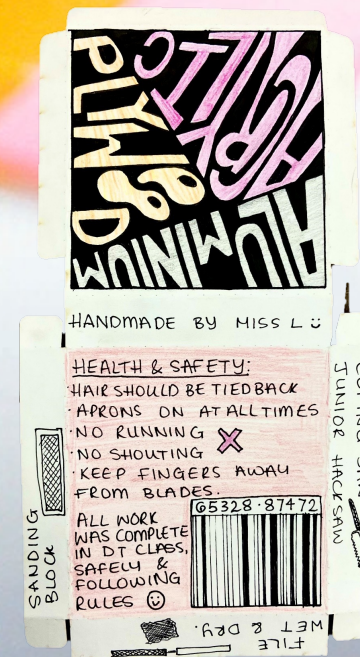 PLYWOOD
ACRYLIC
ALUMINIUM
HANDMADE BY MISS L
HEALTH & SAFETY:
HAIR SHOULD BE TIED BACK
· APRONS ON AT ALL TIMES
· NO RUNNING
· NO SHOUTING
· KEEP FINGERS AWAY
FROM BLADES.
65328·87472
ALL WORK
WAS COMPLETE
IN DT CLASS,
SAFELY &
FOLLOWING
RULES
SANDING
BLOCK
JUNIOR HACKSAW
WET & DRY.
FILE